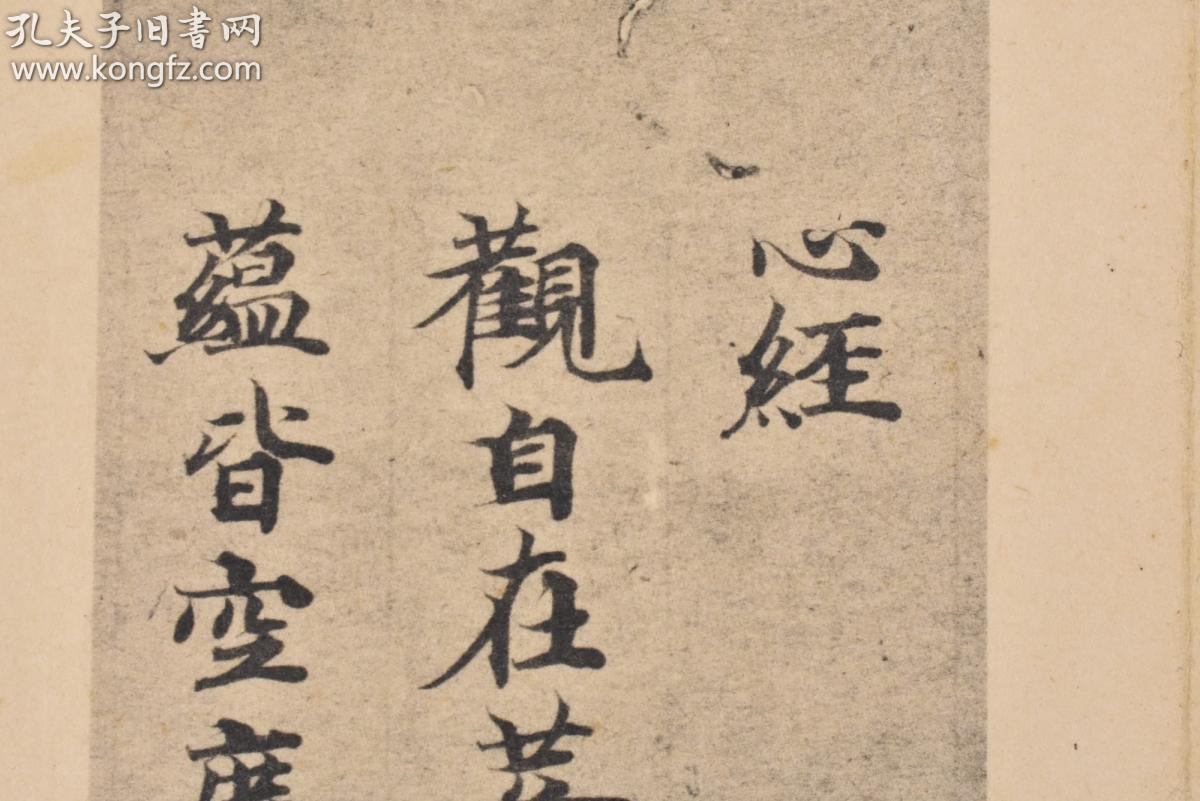 孔夫子旧書网
www.kongfz.com
心經
觀自在菩
蘊皆空度